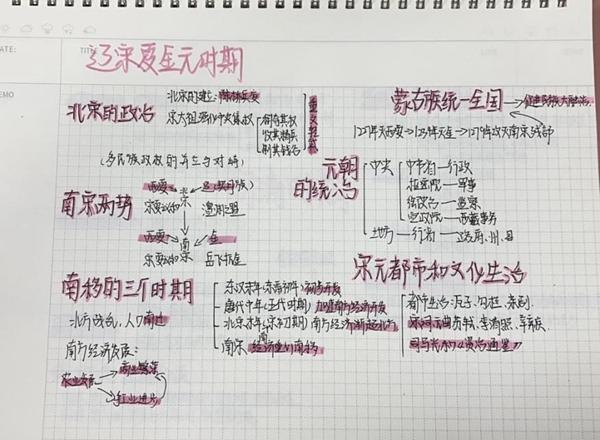 DATE:
TITLE:
MEMO
辽宋夏金元时期
北宋的政治
北宋的建立:陈桥兵变
宋太祖强化中央集权
削夺其权
收其精兵
制其钱谷
重文轻武
(多民族政权的并立与对峙)
南宋两势
西夏
辽(契丹族)
宋
宋夏议和
澶渊之盟
西夏
金
南宋
宋夏议和
岳飞抗金
南移的三个时期
北方战乱,人口南迁
南方经济发展:
农业发展
商业繁荣
手工业进步
东汉末年(东晋初年):初步开发
唐代中年(五代时期)加速南方经济开发
北宋末年(宋初期)南方经济渐超北方
南宋 经济重心南移
蒙古族统一全国
促进民族大融合
1227年灭西夏→1234年灭金→1279年攻灭南宋残部
元朝的统治
中央
中书省—行政
枢密院—军事
御史台—监察
宣政院—西藏事务
地方—行省—路、府、州、县
宋元都市和文化生活
都市生活:瓦子、勾栏、杂剧
宋词元曲苏轼、李清照、辛弃疾
司马光的《资治通鉴》